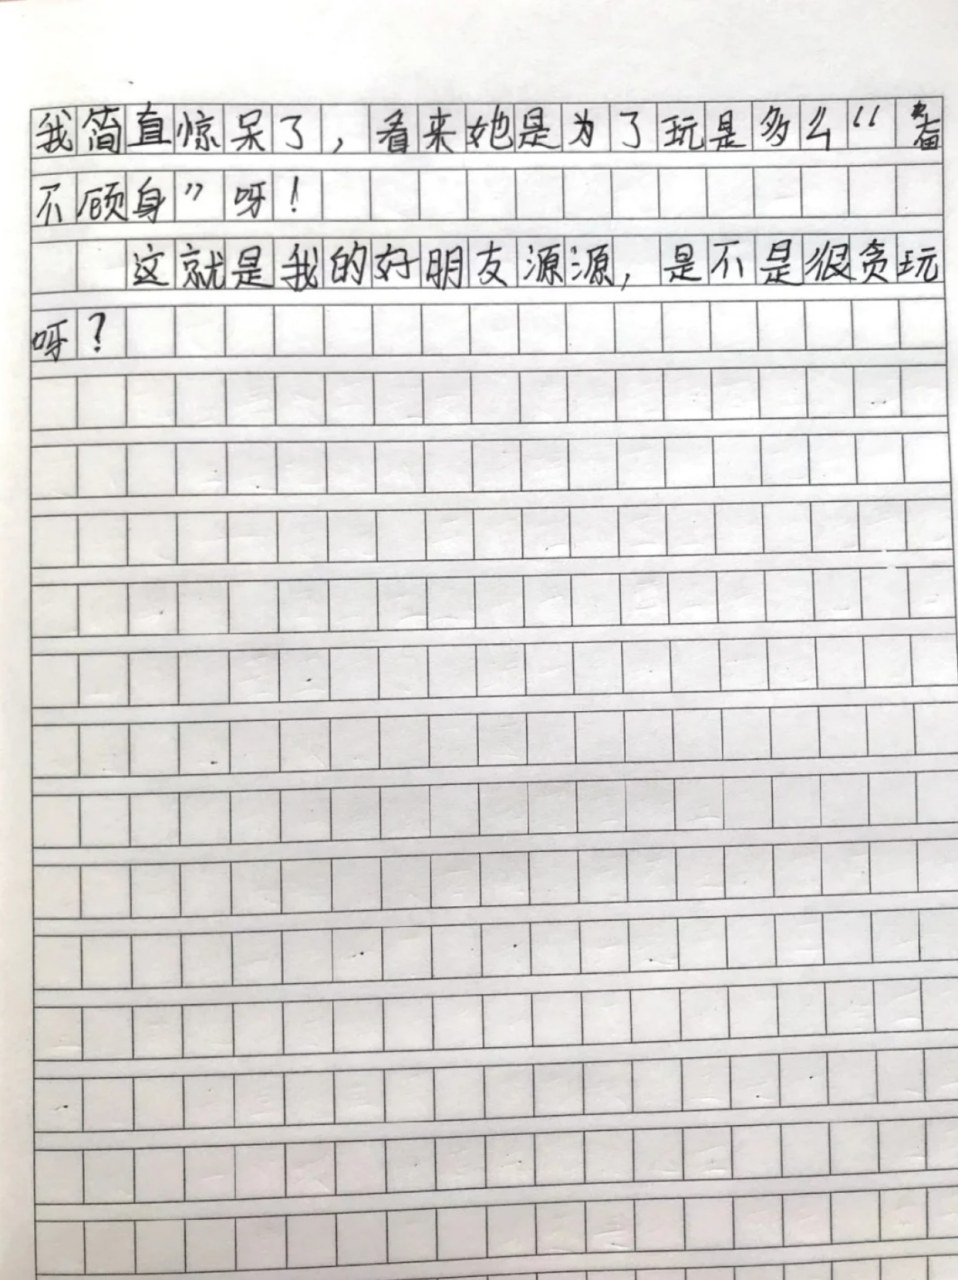 我简直惊呆了，看来她是为了玩是多么“奋
不顾身”呀！
这就是我的好朋友源源，是不是很贪玩
呀？